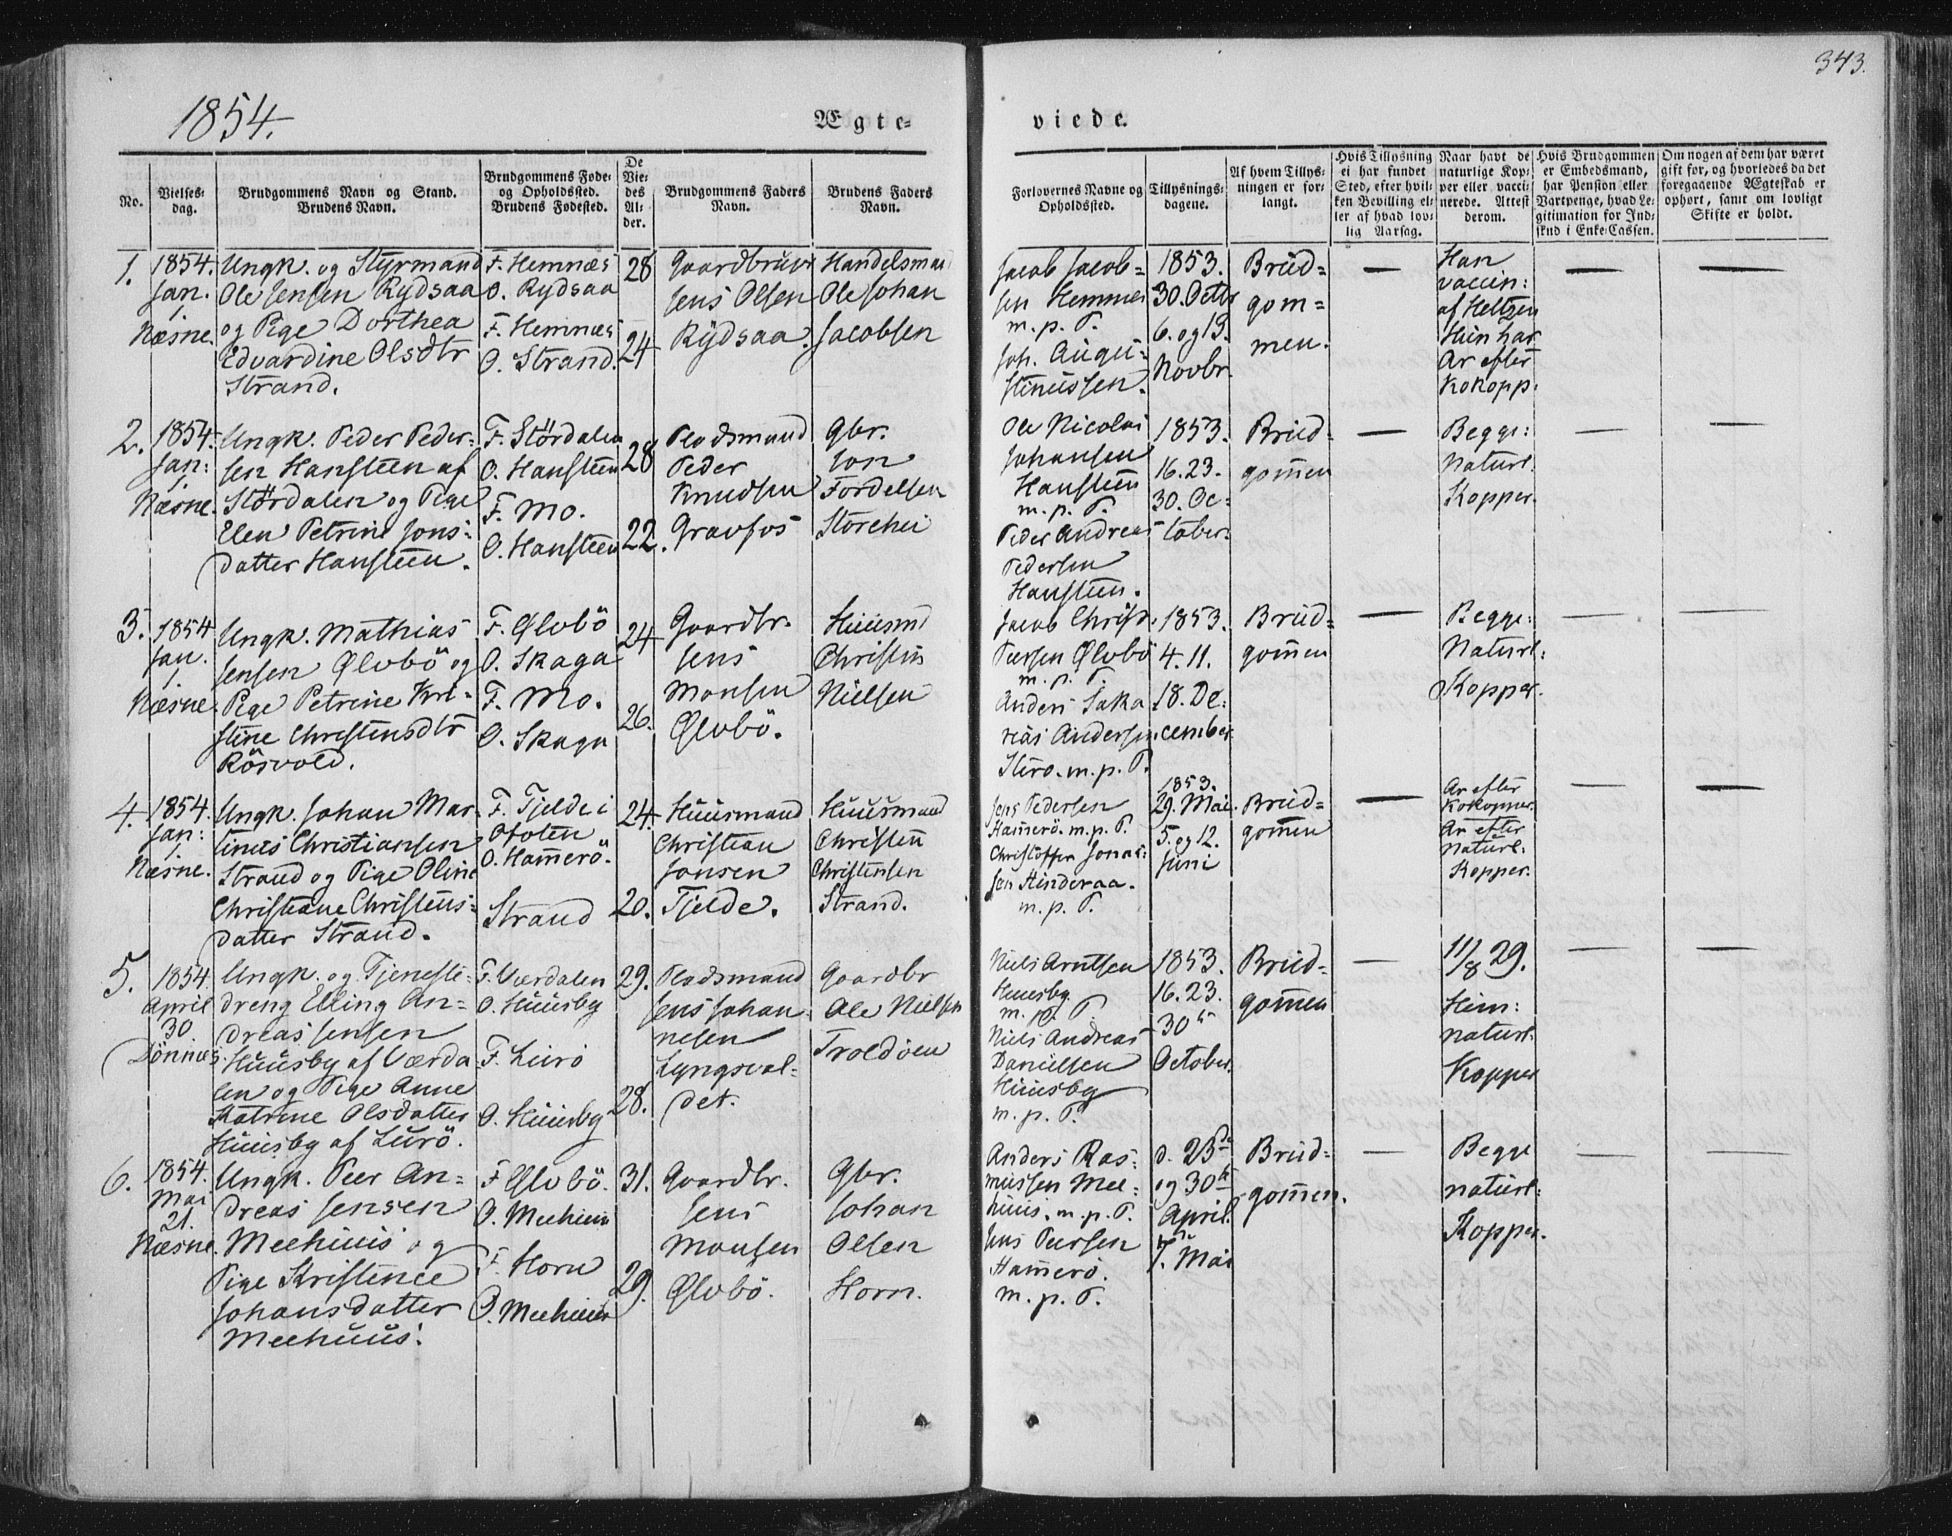 343.
1854.
Ægte-
viede.
No.
Vielses-
dag.
Brudgommens Navn og Stand.
Brudens Navn.
Brudgommens Føde-
og Opholdssted.
Brudens Fødested.
De
Vie-
des
Al-
der.
Brudgommens Faders
Navn.
Brudens Faders
Navn.
Forlovernes Navne og
Opholdssted.
Tillysnings-
dagene.
Af hvem Tillys-
ningen er for-
langt.
Hvis Tillysning
ei har fundet
Sted, efter hvil-
ken Bevilling el-
ler af hvad lov-
lig Aarsag.
Naar havt de
naturlige Kop-
per eller vacci-
nerede. Attest
derom.
Hvis Brudgommen
er Embedsmand,
har Pension eller
Vartpenge, hvad Le-
gitimation for Ind-
skud i Enke-Cassen.
Om nogen af dem har været
gift før, og hvorledes da det
foregaaende Ægteskab er
ophørt, samt om lovligt
Skifte er holdt.
1.
1854.
Jan.
1
Næsne.
Ungk. og Styrmand
Ole Jensen Rydsaa
og Pige Dorthea
Edvardine Olsdtr
Strand.
F. Hemnæs
O. Rydsaa
F. Hemnæs
O. Strand.
28
24
Gaardbruger
Jens Olsen
Rydsaa.
Handelsmand
Ole Johan
Jacobsen
Jacob Jacob-
sen Hemnes
m. p. P.
Joh. Augu-
stinussen.
1853.
30. Octbr
6. og 13.
Novbr.
Brud-
gom-
men.
—
Han
vaccin:
af Heltzen
Hun har
Ar efter
Kokopp.
—
—
2.
1854.
Jan:
1
Næsne.
Ungk. Peder Peder-
sen Hansteen af
Stördalen og Pige
Elen Petrine Jons-
datter Hansteen.
F. Stördalen
O. Hansteen
F. Mo.
O. Hansteen
28
22.
Pladsmand
Peder
Knudsen
Gravfos
Gbr.
Jon
Fordelsen
Storehei
Ole Nicolai
Johansen
Hansteen
m. p. P.
Peder Andreas
Pedersen
Hansteen.
1853.
16. 23.
30. Oc-
tober.
Brud-
gom̄en
—
Begge:
Naturl.
Kopper.
—
—
3.
1854
Jan.
1
Næsne.
Ungk. Mathias
Jensen Ølvbö og
Pige Petrine Kri-
stine Christensdtr
Rösvold.
F. Ølvbö
O. Skaga
F. Mo.
O. Skaga
24
26.
Gaardbr.
Jens
Monsen
Ølvbö.
Huusmd
Christen
Nielsen
Jacob Christ.
Peersen Ølvbö
m. p. P.
Anders Saka-
rias Andersen
m. p. P.
1853.
4. 11.
18. De-
cember.
Brud-
gom̄en
—
Begge:
Naturl:
Kopper.
—
—
4.
1854.
Jan:
1
Næsne.
Ungk. Johan Mar-
tinus Christiansen
Strand og Pige Oline
Christiane Christens-
datter Strand.
F. Tjelde i
Ofoten
O. Ham̄erö.
Strand
24.
20.
Huusmand
Christian
Jansen
Tjelde.
Huusmand
Christen
Christensen
Strand.
Jens Pedersen
Ham̄erö. m. p. P.
Christoffer Jonas-
sen Hinderaa.
m. p. P.
1853.
29. Mai.
5. og 12.
Juni
Brud-
gom̄en
—
Ar efter
Kokopper.
Ar efter
naturl:
Kopper.
—
—
5.
1854
April
30
Dönnæs.
Ungk. og Tjeneste-
dreng Elling An-
dreas Jensen
Huusby af Værda-
len og Pige Anne
Katrine Olsdatter
Huusby af Lurö.
F. Værdalen
O. Huusby
F. Lurö
O. Huusby
29.
28.
Pladsmand
Jens Johan-
nesen
Lyngsval-
det.
Gaardbr
Ole Nielsen
Troldöen
Niels Arntsen
Huusby
m. p. P.
Niels Andreas
Danielsen
Huusby
m. p. P.
1853.
16. 23.
30te
October.
Brud-
gom̄en
—
11/8 29.
Hun:
naturl.
Kopper
—
—
6.
1854.
Mai
21.
Næsne.
Ungk. Peer An-
dreas Jensen
Meehuus og
Pige Kristence
Johansdatter
Meehuus.
F Ølvbö.
O. Meehuus
F. Horn
O. Meehuus
31.
29.
Gaardbr.
Jens
Monsen
Ølvbö.
Gbr.
Johan
Olsen
Horn.
Anders Ras-
mussen Mee-
huus. m. p. P.
Jens Peersen
Ham̄erö.
m. p. P.
d. 23de
og 30te
April.
7. Mai
Brud-
gom̄en.
—
Begge
naturl:
Kopper.
—
—